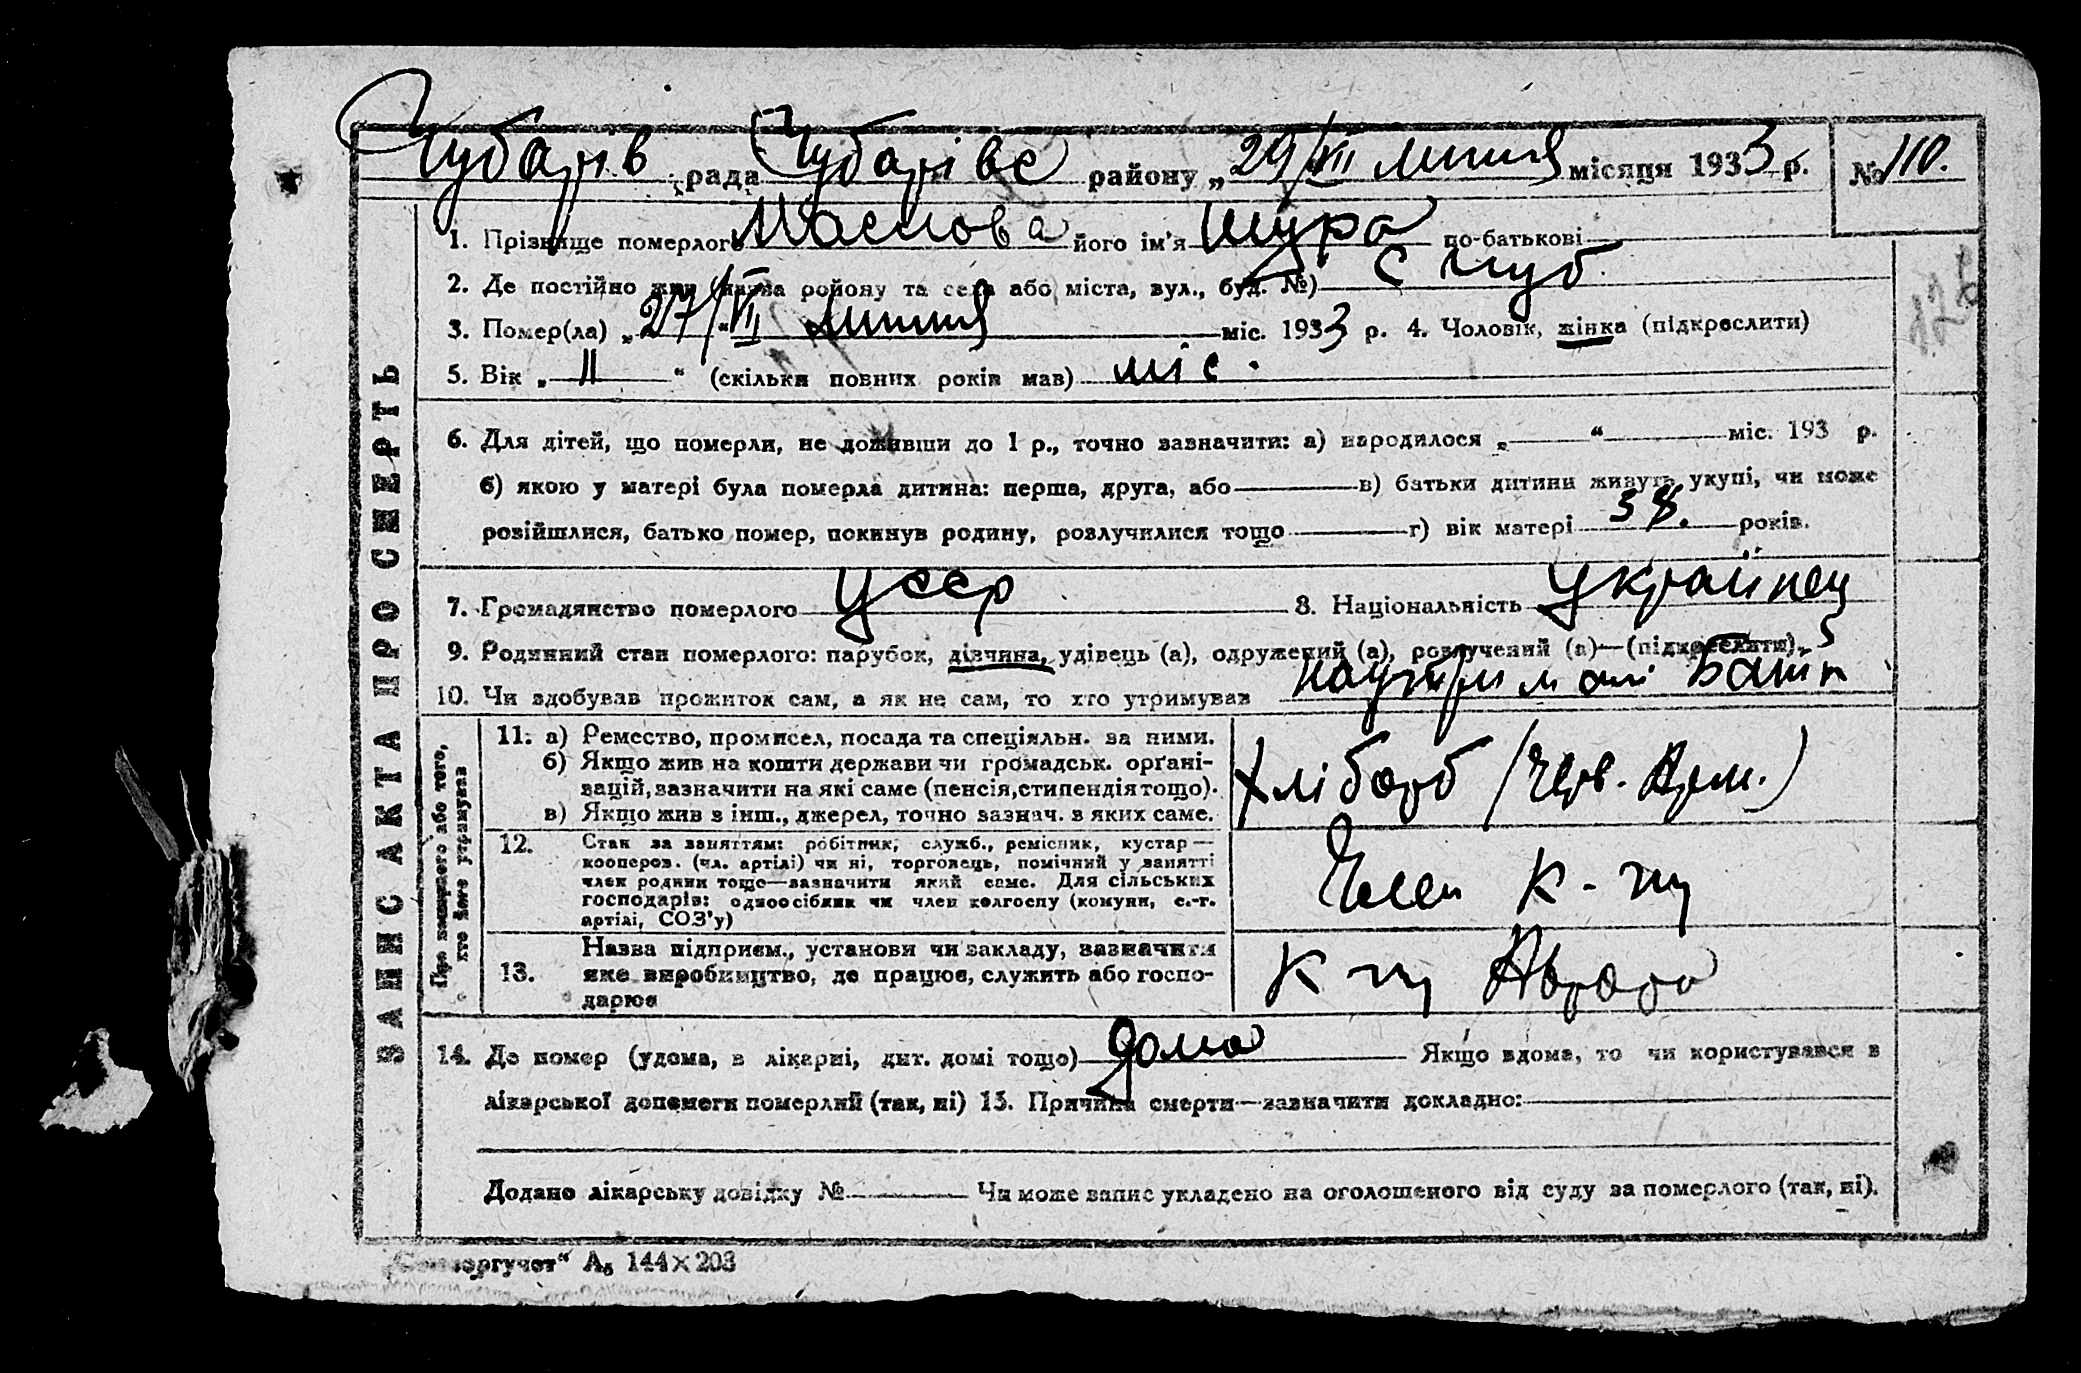 Чубарів рада Чубарівс району „29/VII липня місяця 1933 р. № 110.
1. Прізвище померлого Маслова його ім'я Шура по-батькові
2. Де постійно жив (назва району та села або міста, вул., буд. №) с Чуб.
3. Помер(ла) „27/VII“ липня міс. 1933 р. 4. Чоловік, жінка (підкреслити)
5. Вік „11“ (скільки повних років мав) міс.
6. Для дітей, що померли, не доживши до 1 р., точно зазначити: а) народилося „ “ міс. 193 р.
б) якою у матері була померла дитина: перша, друга, або в) батьки дитини живуть укупі, чи може
розійшлися, батько помер, покинув родину, розлучилися тощо г) вік матері 38. років.
7. Громадянство померлого Усср 8. Національність Українец
9. Родинний стан померлого: парубок, дівчина, удівець (а), одружений (а), розлучений (а)—(підкреслити).
10. Чи здобував прожиток сам, а як не сам, то хто утримував
ЗАПИС АКТА ПРО СМЕРТЬ
Про померлого або того, хто його утримував
11. а) Ремество, промисел, посада та спеціяльн. за ними.
б) Якщо жив на кошти держави чи громадськ. орґані-
зацій, зазначити на які саме (пенсія, стипендія тощо).
в) Якщо жив з інш., джерел, точно зазнач. з яких саме.
Хлібороб (Черв. Арм.)
12. Стан за заняттям: робітник, служб., ремісник, кустар—
кооперов. (чл. артілі) чи ні, торговець, помічний у занятті
член родини тощо—зазначити який саме. Для сільських
господарів: одноосібник чи член колгоспу (комуни, с.-г.
артілі, СОЗ'у)
Член к-гу
13. Назва підприєм., установи чи закладу, зазначити
яке виробництво, де працює, служить або госпо-
дарює
К гу Аврора
14. Де помер (удома, в лікарні, дит. домі тощо) дома Якщо вдома, то чи користувався з
лікарської допомоги померлий (так, ні) 15. Причина смерти—зазначити докладно:
Додано лікарську довідку № Чи може запис укладено на оголошеного від суду за померлого (так, ні).
А₅ 144×203